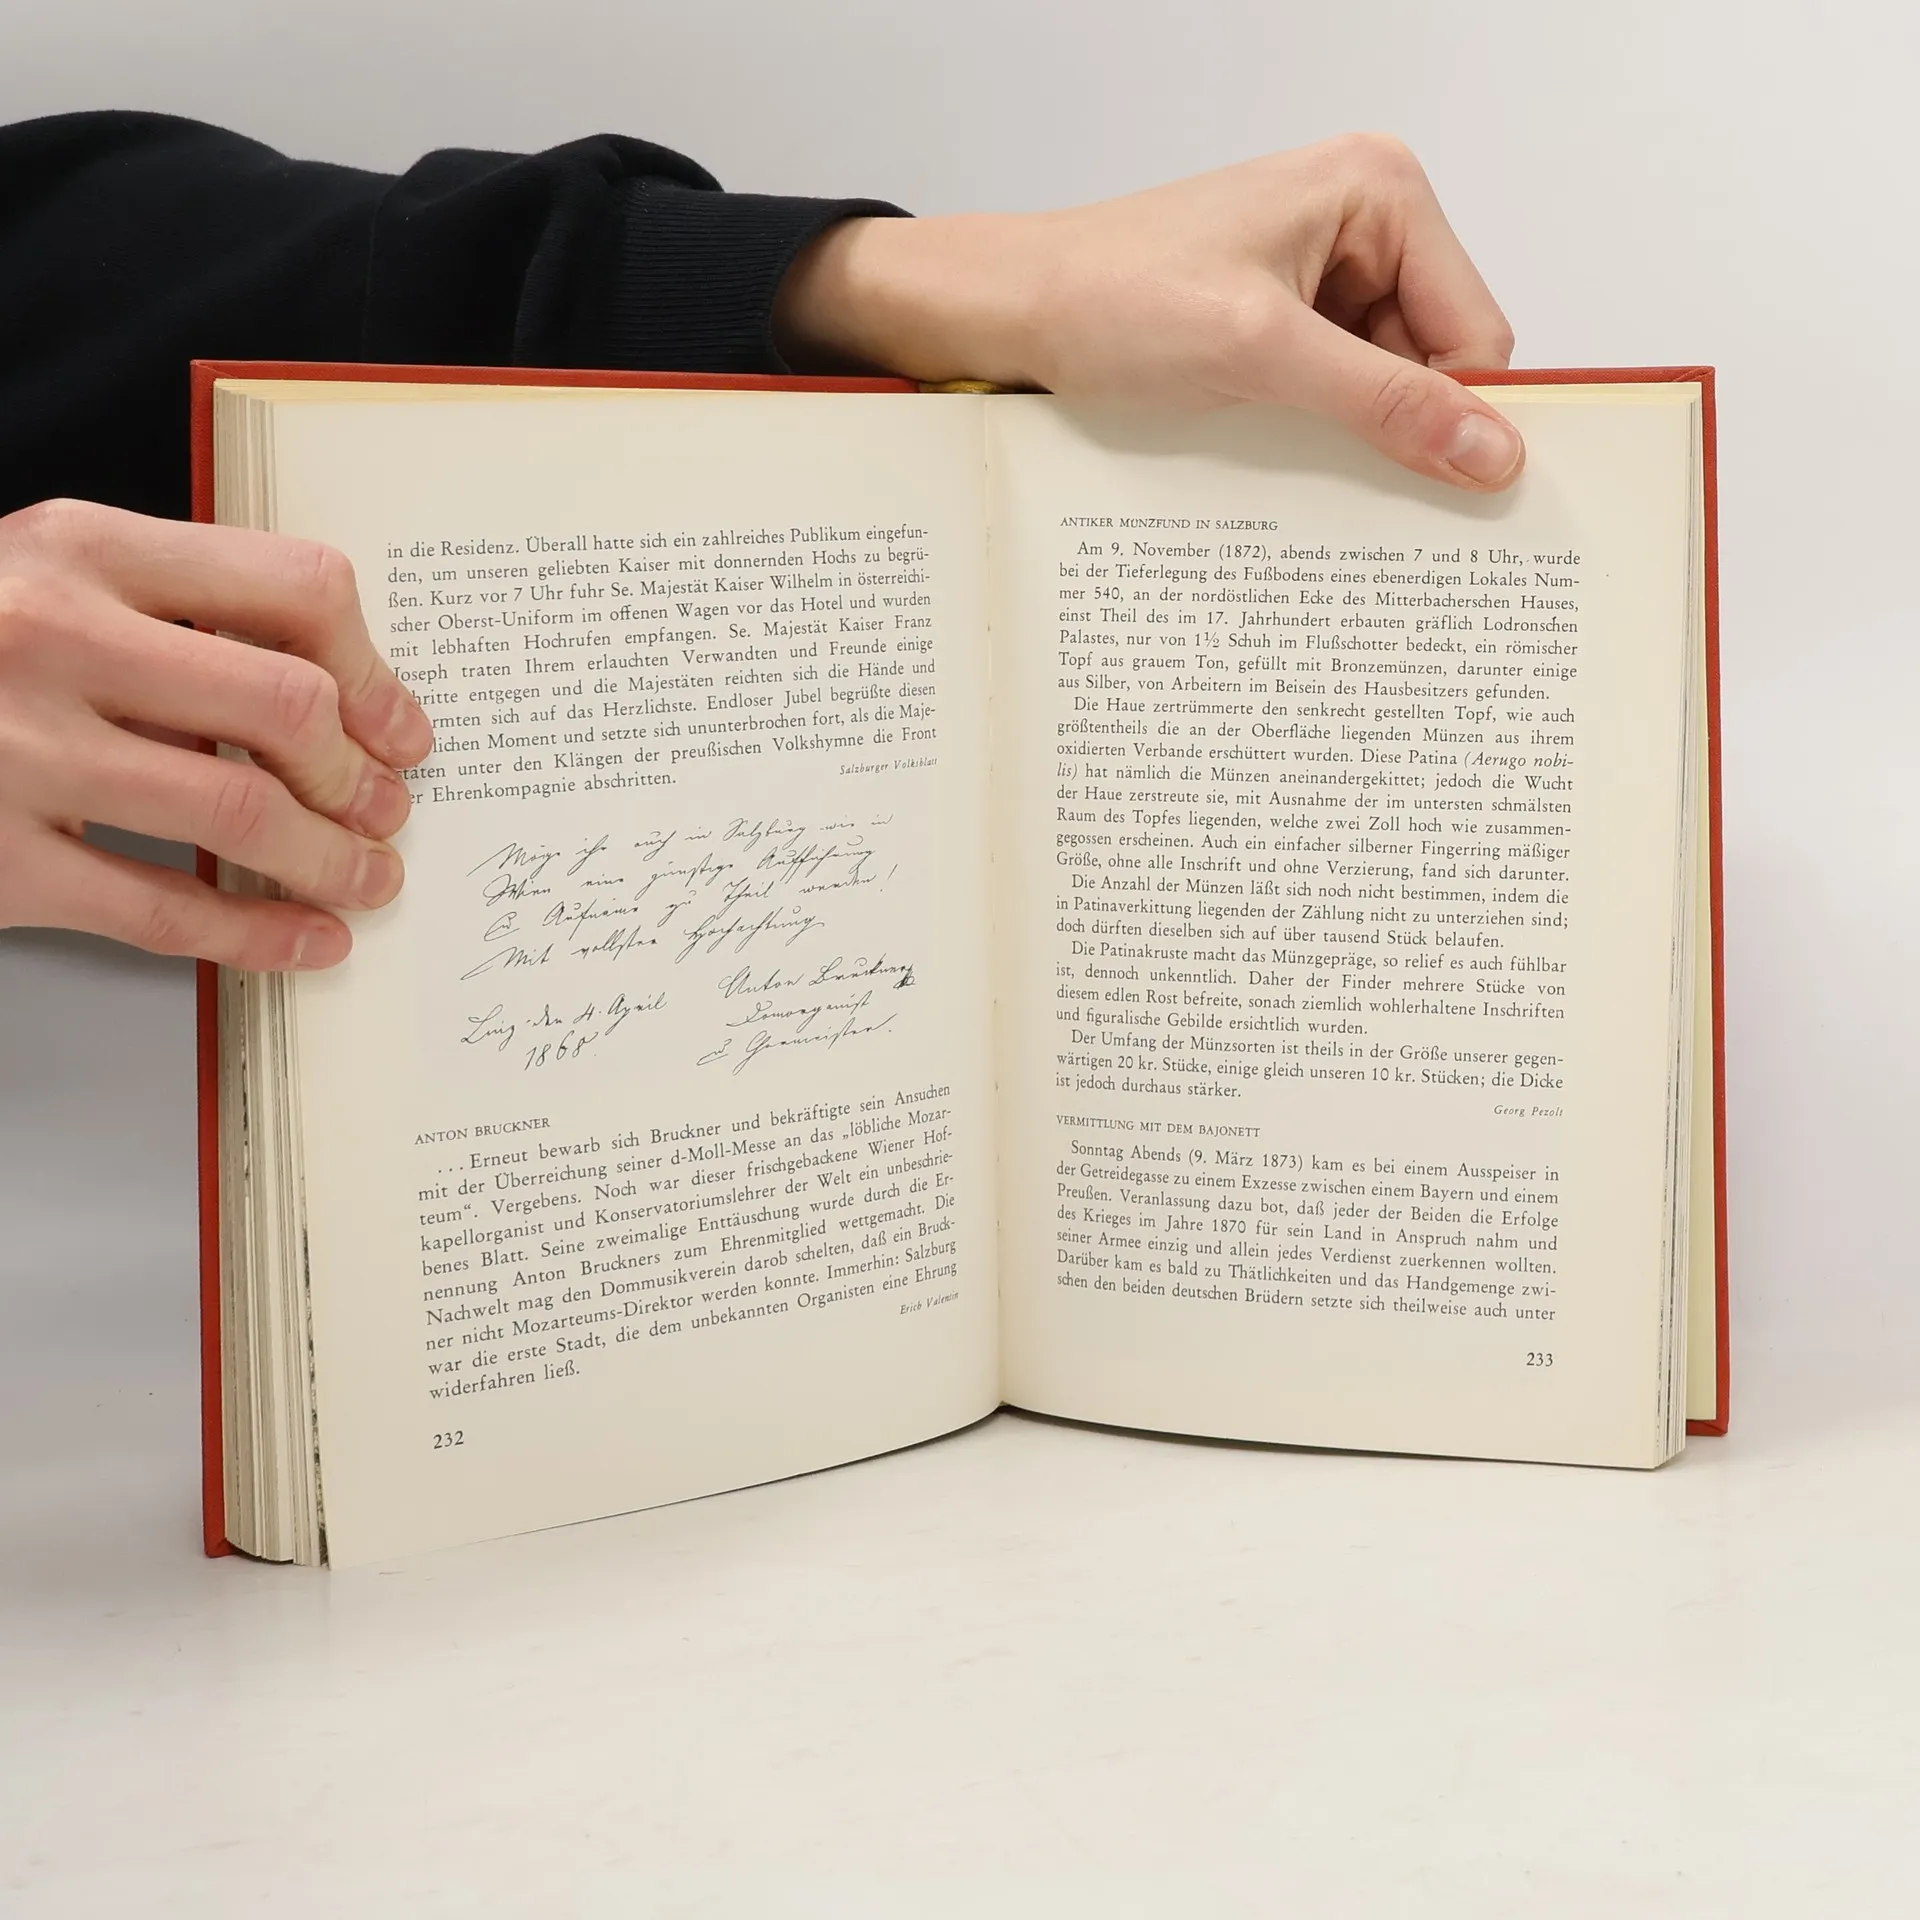 in die Residenz. Überall hatte sich ein zahlreiches Publikum eingefun-
den, um unseren geliebten Kaiser mit donnernden Hochs zu begrü-
ßen. Kurz vor 7 Uhr fuhr Se. Majestät Kaiser Wilhelm in österreichi-
scher Oberst-Uniform im offenen Wagen vor das Hotel und wurden
mit lebhaften Hochrufen empfangen. Se. Majestät Kaiser Franz
Joseph traten Ihrem erlauchten Verwandten und Freunde einige
hritte entgegen und die Majestäten reichten sich die Hände und
rmten sich auf das Herzlichste. Endloser Jubel begrüßte diesen
lichen Moment und setzte sich ununterbrochen fort, als die Maje-
stäten unter den Klängen der preußischen Volkshymne die Front
er Ehrenkompagnie abschritten.
Salzburger Volksblatt
Möge ihr auch in Salzburg wie in
Wien eine günstige Aufführung
u Aufname zu Theil werden!
Mit vollster Hochachtung
Anton Bruckner
Linz den 4. April
Domorganist
1868.
u. Chormeister.
ANTON BRUCKNER
... Erneut bewarb sich Bruckner und bekräftigte sein Ansuchen
mit der Überreichung seiner d-Moll-Messe an das „löbliche Mozar-
teum“. Vergebens. Noch war dieser frischgebackene Wiener Hof-
kapellorganist und Konservatoriumslehrer der Welt ein unbeschrie-
benes Blatt. Seine zweimalige Enttäuschung wurde durch die Er-
nennung Anton Bruckners zum Ehrenmitglied wettgemacht. Die
Nachwelt mag den Dommusikverein darob schelten, daß ein Bruck-
ner nicht Mozarteums-Direktor werden konnte. Immerhin: Salzburg
war die erste Stadt, die dem unbekannten Organisten eine Ehrung
widerfahren ließ.
Erich Valentin
232
ANTIKER MÜNZFUND IN SALZBURG
Am 9. November (1872), abends zwischen 7 und 8 Uhr, wurde
bei der Tieferlegung des Fußbodens eines ebenerdigen Lokales Num-
mer 540, an der nordöstlichen Ecke des Mitterbacherschen Hauses,
einst Theil des im 17. Jahrhundert erbauten gräflich Lodronschen
Palastes, nur von 1½ Schuh im Flußschotter bedeckt, ein römischer
Topf aus grauem Ton, gefüllt mit Bronzemünzen, darunter einige
aus Silber, von Arbeitern im Beisein des Hausbesitzers gefunden.
Die Haue zertrümmerte den senkrecht gestellten Topf, wie auch
größtentheils die an der Oberfläche liegenden Münzen aus ihrem
oxidierten Verbande erschüttert wurden. Diese Patina (Aerugo nobi-
lis) hat nämlich die Münzen aneinandergekittet; jedoch die Wucht
der Haue zerstreute sie, mit Ausnahme der im untersten schmälsten
Raum des Topfes liegenden, welche zwei Zoll hoch wie zusammen-
gegossen erscheinen. Auch ein einfacher silberner Fingerring mäßiger
Größe, ohne alle Inschrift und ohne Verzierung, fand sich darunter.
Die Anzahl der Münzen läßt sich noch nicht bestimmen, indem die
in Patinaverkittung liegenden der Zählung nicht zu unterziehen sind;
doch dürften dieselben sich auf über tausend Stück belaufen.
Die Patinakruste macht das Münzgepräge, so relief es auch fühlbar
ist, dennoch unkenntlich. Daher der Finder mehrere Stücke von
diesem edlen Rost befreite, sonach ziemlich wohlerhaltene Inschriften
und figuralische Gebilde ersichtlich wurden.
Der Umfang der Münzsorten ist theils in der Größe unserer gegen-
wärtigen 20 kr. Stücke, einige gleich unseren 10 kr. Stücken; die Dicke
ist jedoch durchaus stärker.
Georg Pezolt
VERMITTLUNG MIT DEM BAJONETT
Sonntag Abends (9. März 1873) kam es bei einem Ausspeiser in
der Getreidegasse zu einem Exzesse zwischen einem Bayern und einem
Preußen. Veranlassung dazu bot, daß jeder der Beiden die Erfolge
des Krieges im Jahre 1870 für sein Land in Anspruch nahm und
seiner Armee einzig und allein jedes Verdienst zuerkennen wollten.
Darüber kam es bald zu Thätlichkeiten und das Handgemenge zwi-
schen den beiden deutschen Brüdern setzte sich theilweise auch unter
233